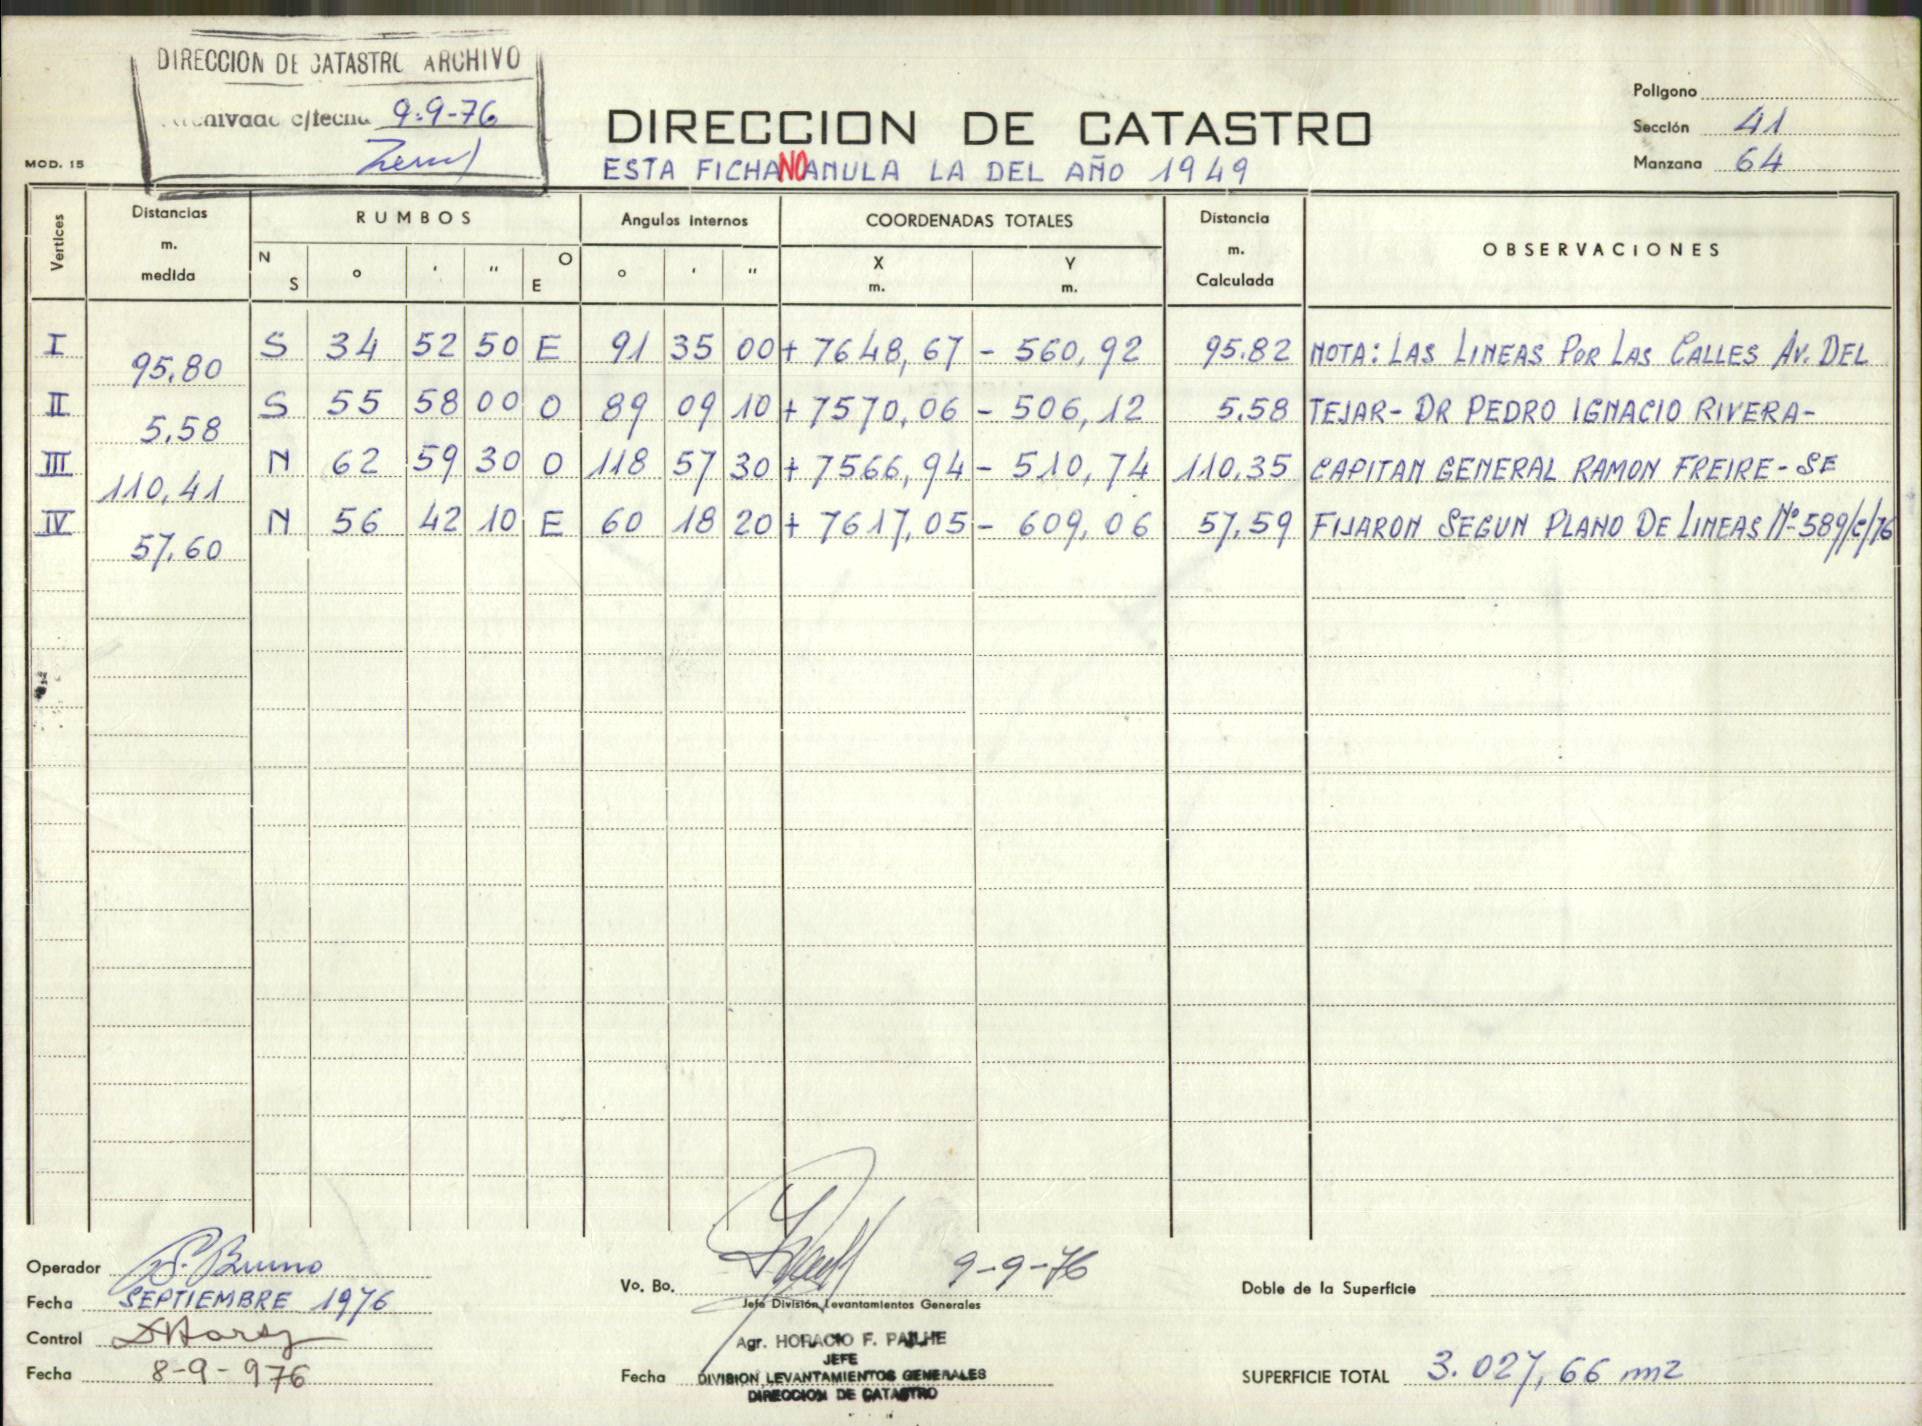 DIRECCION DE CATASTRO ARCHIVO
Archivado c/fecha 9-9-76
MOD. 15
DIRECCION DE CATASTRO
ESTA FICHA NO ANULA LA DEL AÑO 1949
Polígono
Sección 41
Manzana 64
Vertices
Distancias m. medida
RUMBOS
N S ° ' " O E
Angulos internos
° ' "
COORDENADAS TOTALES
X m. Y m.
Distancia m. Calculada
OBSERVACIONES
I 95,80 S 34 52 50 E 91 35 00 + 7648,67 - 560,92 95.82 NOTA: LAS LINEAS POR LAS CALLES AV. DEL
II 5,58 S 55 58 00 O 89 09 10 + 7570,06 - 506,12 5.58 TEJAR- DR PEDRO IGNACIO RIVERA-
III 110,41 N 62 59 30 O 118 57 30 + 7566,94 - 510,74 110,35 CAPITAN GENERAL RAMON FREIRE- SE
IV 57,60 N 56 42 10 E 60 18 20 + 7617,05 - 609,06 57,59 FIJARON SEGUN PLANO DE LINEAS Nº 589/C/76
Operador S. Bruno
Fecha SEPTIEMBRE 1976
Control
Fecha 8-9-976
Vo. Bo. 9-9-76
Jefe División Levantamientos Generales
Agr. HORACIO F. PAILHE
JEFE
Fecha DIVISION LEVANTAMIENTOS GENERALES
DIRECCION DE CATASTRO
Doble de la Superficie
SUPERFICIE TOTAL 3.027,66 m2